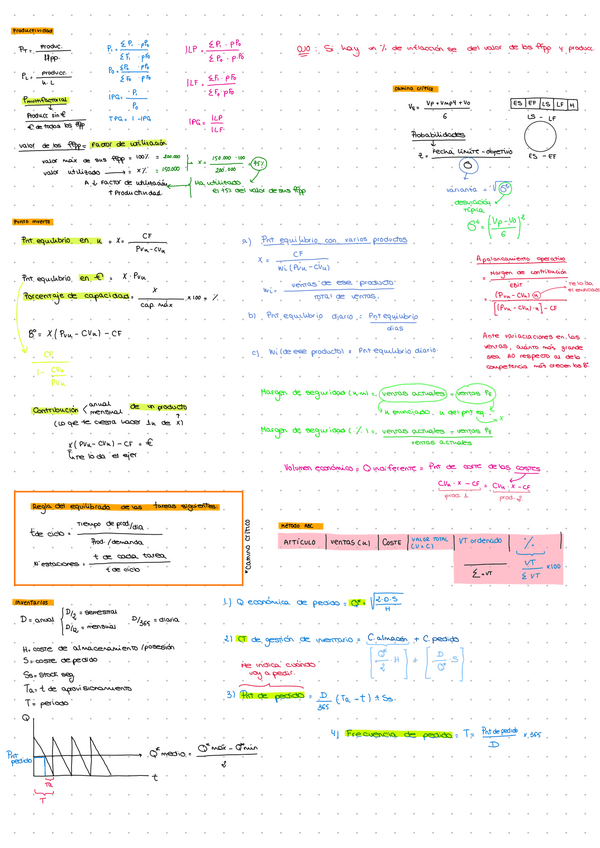 Productividad
PT = Produc. / Mpp.
PL = Producc / u. L
Pmultifactorial
Producc sin € / € de todos los ffpp
P1 = Σ P1 · pP0 / Σ F1 · pF0
P0 = Σ P0 · pP0 / Σ F0 · pF0
IPG = P1 / P0
TPG = 1 - IPG
ILP = Σ P1 · pP0 / Σ P0 · pP0
ILF = Σ F1 · pF0 / Σ F0 · pF0
IPG = ILP / ILF
OJO: Si hay un % de inflacción se del valor de los ffpp y produce
valor de los ffpp = Factor de utilización
valor máx de sus ffpp = 100% = 200.000
valor utilizado → x% = 150.000
x = 150.000 · 100 / 200.000 = 75%
A ↓ Factor de utilización
↑ Productividad
Ha utilizado
el 75% del valor de sus ffpp
Camino crítico
VE = Vp + 4mp4 + Vo / 6
ES EF LS LF H
LS - LF
ES - EF
Probabilidades
z = Fecha límite - objetivo / σ
varianza = √σ²
desviación típica
σ² = (Vp - Vo / 6)²
Punto muerto
Pnt equilibrio en u = x = CF / Pvu - cvu
Pnt equilibrio en € = x · Pvu
Porcentaje de capacidad = x / cap máx x 100 = %
Bº = x (Pvu - CVu) - CF
CF / 1 - CVu / Pvu
Contribución anual mensual de un producto
(Lo que te cuesta hacer 1u de x)
x (Pvu - CVu) - CF = €
↳ te lo da el ejer
a) Pnt equilibrio con varios productos
x = CF / Wi (Pvu - CVu)
Wi = ventas de ese producto / TOTAL de ventas.
b) Pnt equilibrio diario = Pnt equilibrio / días
c) Wi (de ese producto) = Pnt equilibrio diario
Apalancamiento operativo
= Margen de contribución / EBIT
= (Pvu - CVu) · x / [(Pvu - CVu) · x] - CF
Te lo da el enunciado
Ante variaciaciones en las
ventas, cuánto más grande
sea AO respecto al de la
competencia más crecen los Bº
Margen de seguridad (u.m) = ventas actuales - ventas PE
u enunciado, u del pnt eq. x
Margen de seguridad (%) = ventas actuales - ventas PE / ventas actuales
Volumen económico = Q indiferente = Pnt de corte de los costes
CVu · x - CF = CVu · x - CF
prod. 1 prod. 2
Regla del equilibrado de las tareas siguientes
t de ciclo = Tiempo de prod/dia / Prod. / demanda
Nº estaciones = t de cada tarea / t de ciclo
*Camino crítico
Método ABC
ARTÍCULO VENTAS (u) COSTE VALOR TOTAL (V x C) VT ordenado %
Σ = VT
VT / Σ VT x100
Inventarios
D = anual D/2 = semestral D/12 = mensual D/365 = diaria
H = coste de almacenamiento / posesión
S = coste de pedido
Ss = Stock seg
Ta = t de aprovisionamiento
T = periodo
Q
Pnt pedido
Ta
T
t
Q* medio = Q* máx - Q* mín / 2
1) Q económica de pedido = Q* √2·D·S / H
2) CT de gestión de inventario = C. almacén + C. pedido
[Q* / 2 · H] + [D / Q* · S]
Me indica cuándo
voy a pedir.
3) Pnt de pedido = D / 365 (Ta - t) + Ss.
4) Frecuencia de pedido = T = Pnt de pedido / D x 365